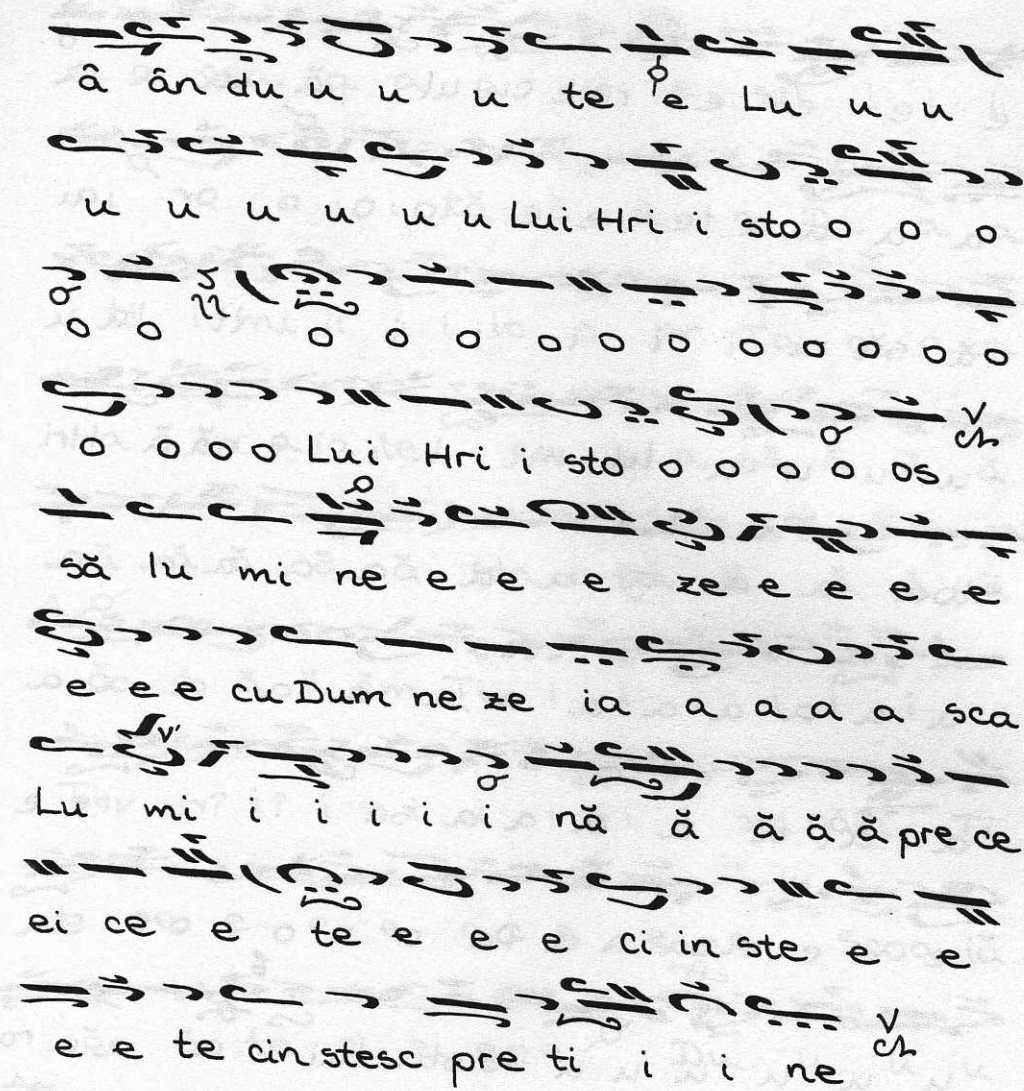 â ân du u u u te e Lu u u
u u u u u u Lui Hri i sto o o o
o o o o o o o o o o o o o
o o o o Lui Hri i sto o o o o os
să lu mi ne e e e ze e e e e
e e e cu Dum ne ze ia a a a a sca
Lu mi i i i i i nă ă ă ă ă pre ce
ei ce e te e e e ci in ste e e
e e te cin stesc pre ti i i ne